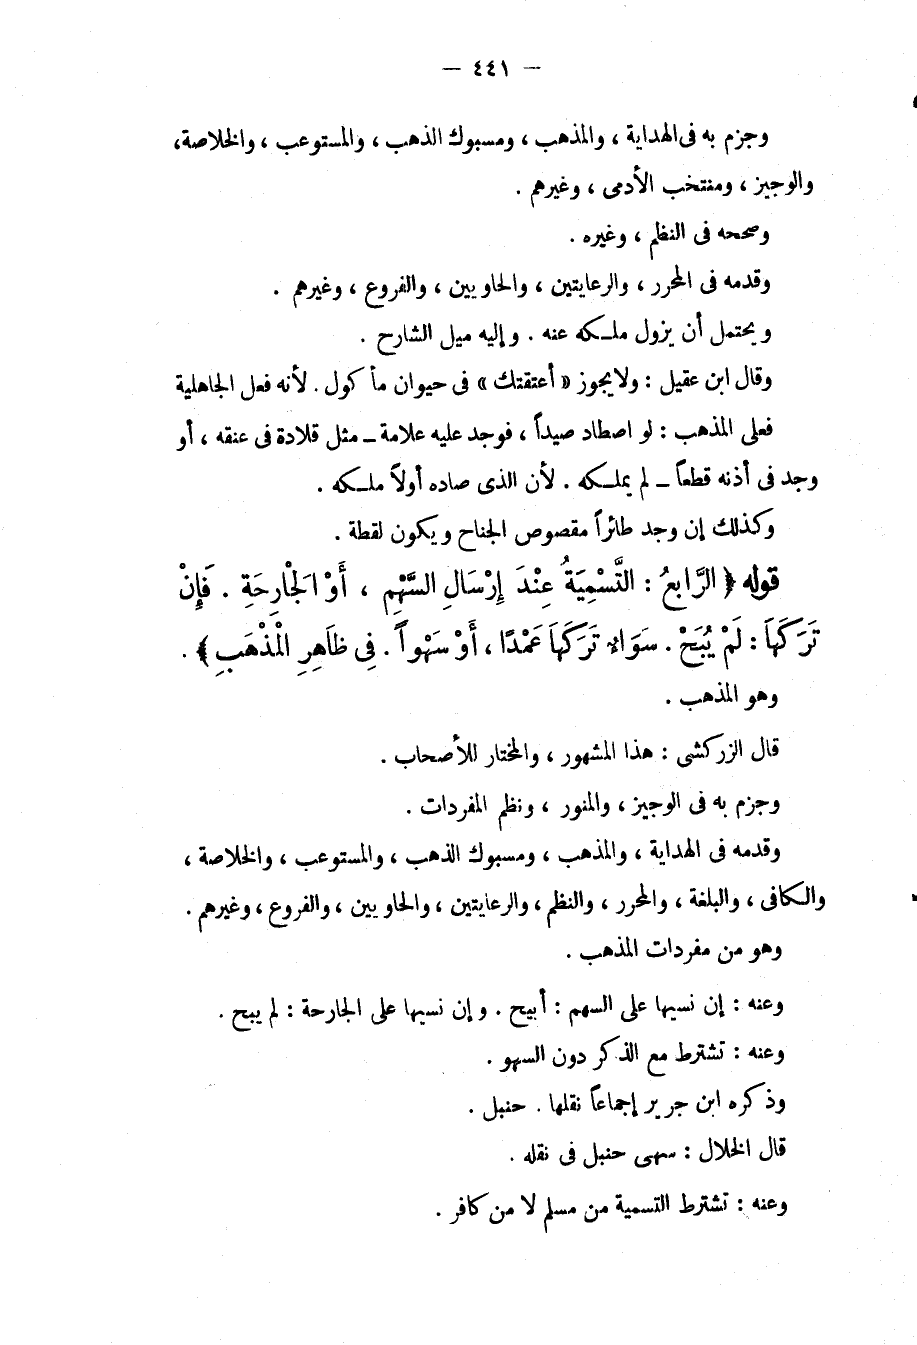 — ٤٤١ —
وجزم به فى الهداية ، والمذهب ، ومسبوك الذهب ، والمستوعب ، والخلاصة،
والوجيز ، ومنتخب الأدمى ، وغيرهم .
وصححه فى النظم ، وغيره .
وقدمه فى المحرر ، والرعايتين ، والحاويين ، والفروع ، وغيرهم .
ويحتمل أن يزول ملكه عنه . وإليه ميل الشارح .
وقال ابن عقيل : ولا يجوز « أعتقتك » فى حيوان مأكول . لأنه فعل الجاهلية
فعلى المذهب : لو اصطاد صيداً ، فوجد عليه علامة ــ مثل قلادة فى عنقه ، أو
وجد فى أذنه قطعاً ــ لم يملكه . لأن الذى صاده أولاً ملكه .
وكذلك إن وجد طائراً مقصوص الجناح ويكون لقطة .
قوله ﴿ الرَّابعُ : التَّسْمِيَةُ عِنْدَ إِرْسَالِ السَّهْمِ ، أَوْ الْجَارِحَةِ . فَإِنْ
تَرَكَهَا : لَمْ يُبَحْ . سَوَاء تَرَكَهَا عَمْدًا ، أَوْ سَهْواً . فِى ظَاهِرِ الْمَذْهَبِ ﴾ .
وهو المذهب .
قال الزركشى : هذا المشهور ، والمختار للأصحاب .
وجزم به فى الوجيز ، والمنور ، ونظم المفردات .
وقدمه فى الهداية ، والمذهب ، ومسبوك الذهب ، والمستوعب ، والخلاصة ،
والكافى ، والبلغة ، والمحرر ، والنظم ، والرعايتين ، والحاويين ، والفروع ، وغيرهم .
وهو من مفردات المذهب .
وعنه : إن نسيها على السهم : أبيح . وإن نسيها على الجارحة : لم يبح .
وعنه : تشترط مع الذكر دون السهو .
وذكره ابن جرير إجماعاً نقلها . حنبل .
قال الخلال : سهى حنبل فى نقله .
وعنه : تشترط التسمية من مسلم لا من كافر .